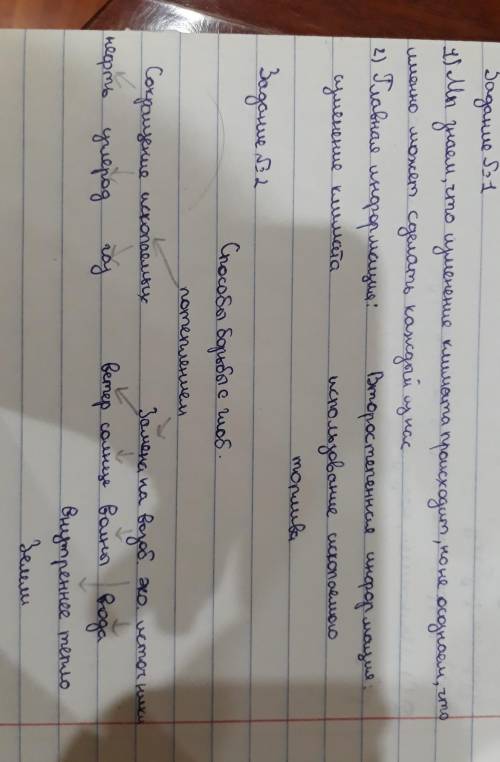 Задание №1
1) Мы знаем, что изменение климата происходит, но не осознаем, что
именно может сделать каждый из нас
2) Главная информация: Второстепенная информация:
изменение климата использование ископаемого
топлива
Задание №2
Способы борьбы с глоб.
потеплением
Сокращение ископаемых Замена на возоб эко источники
нефть углерод газ ветер солнце волны вода
внутреннее тепло
Земли